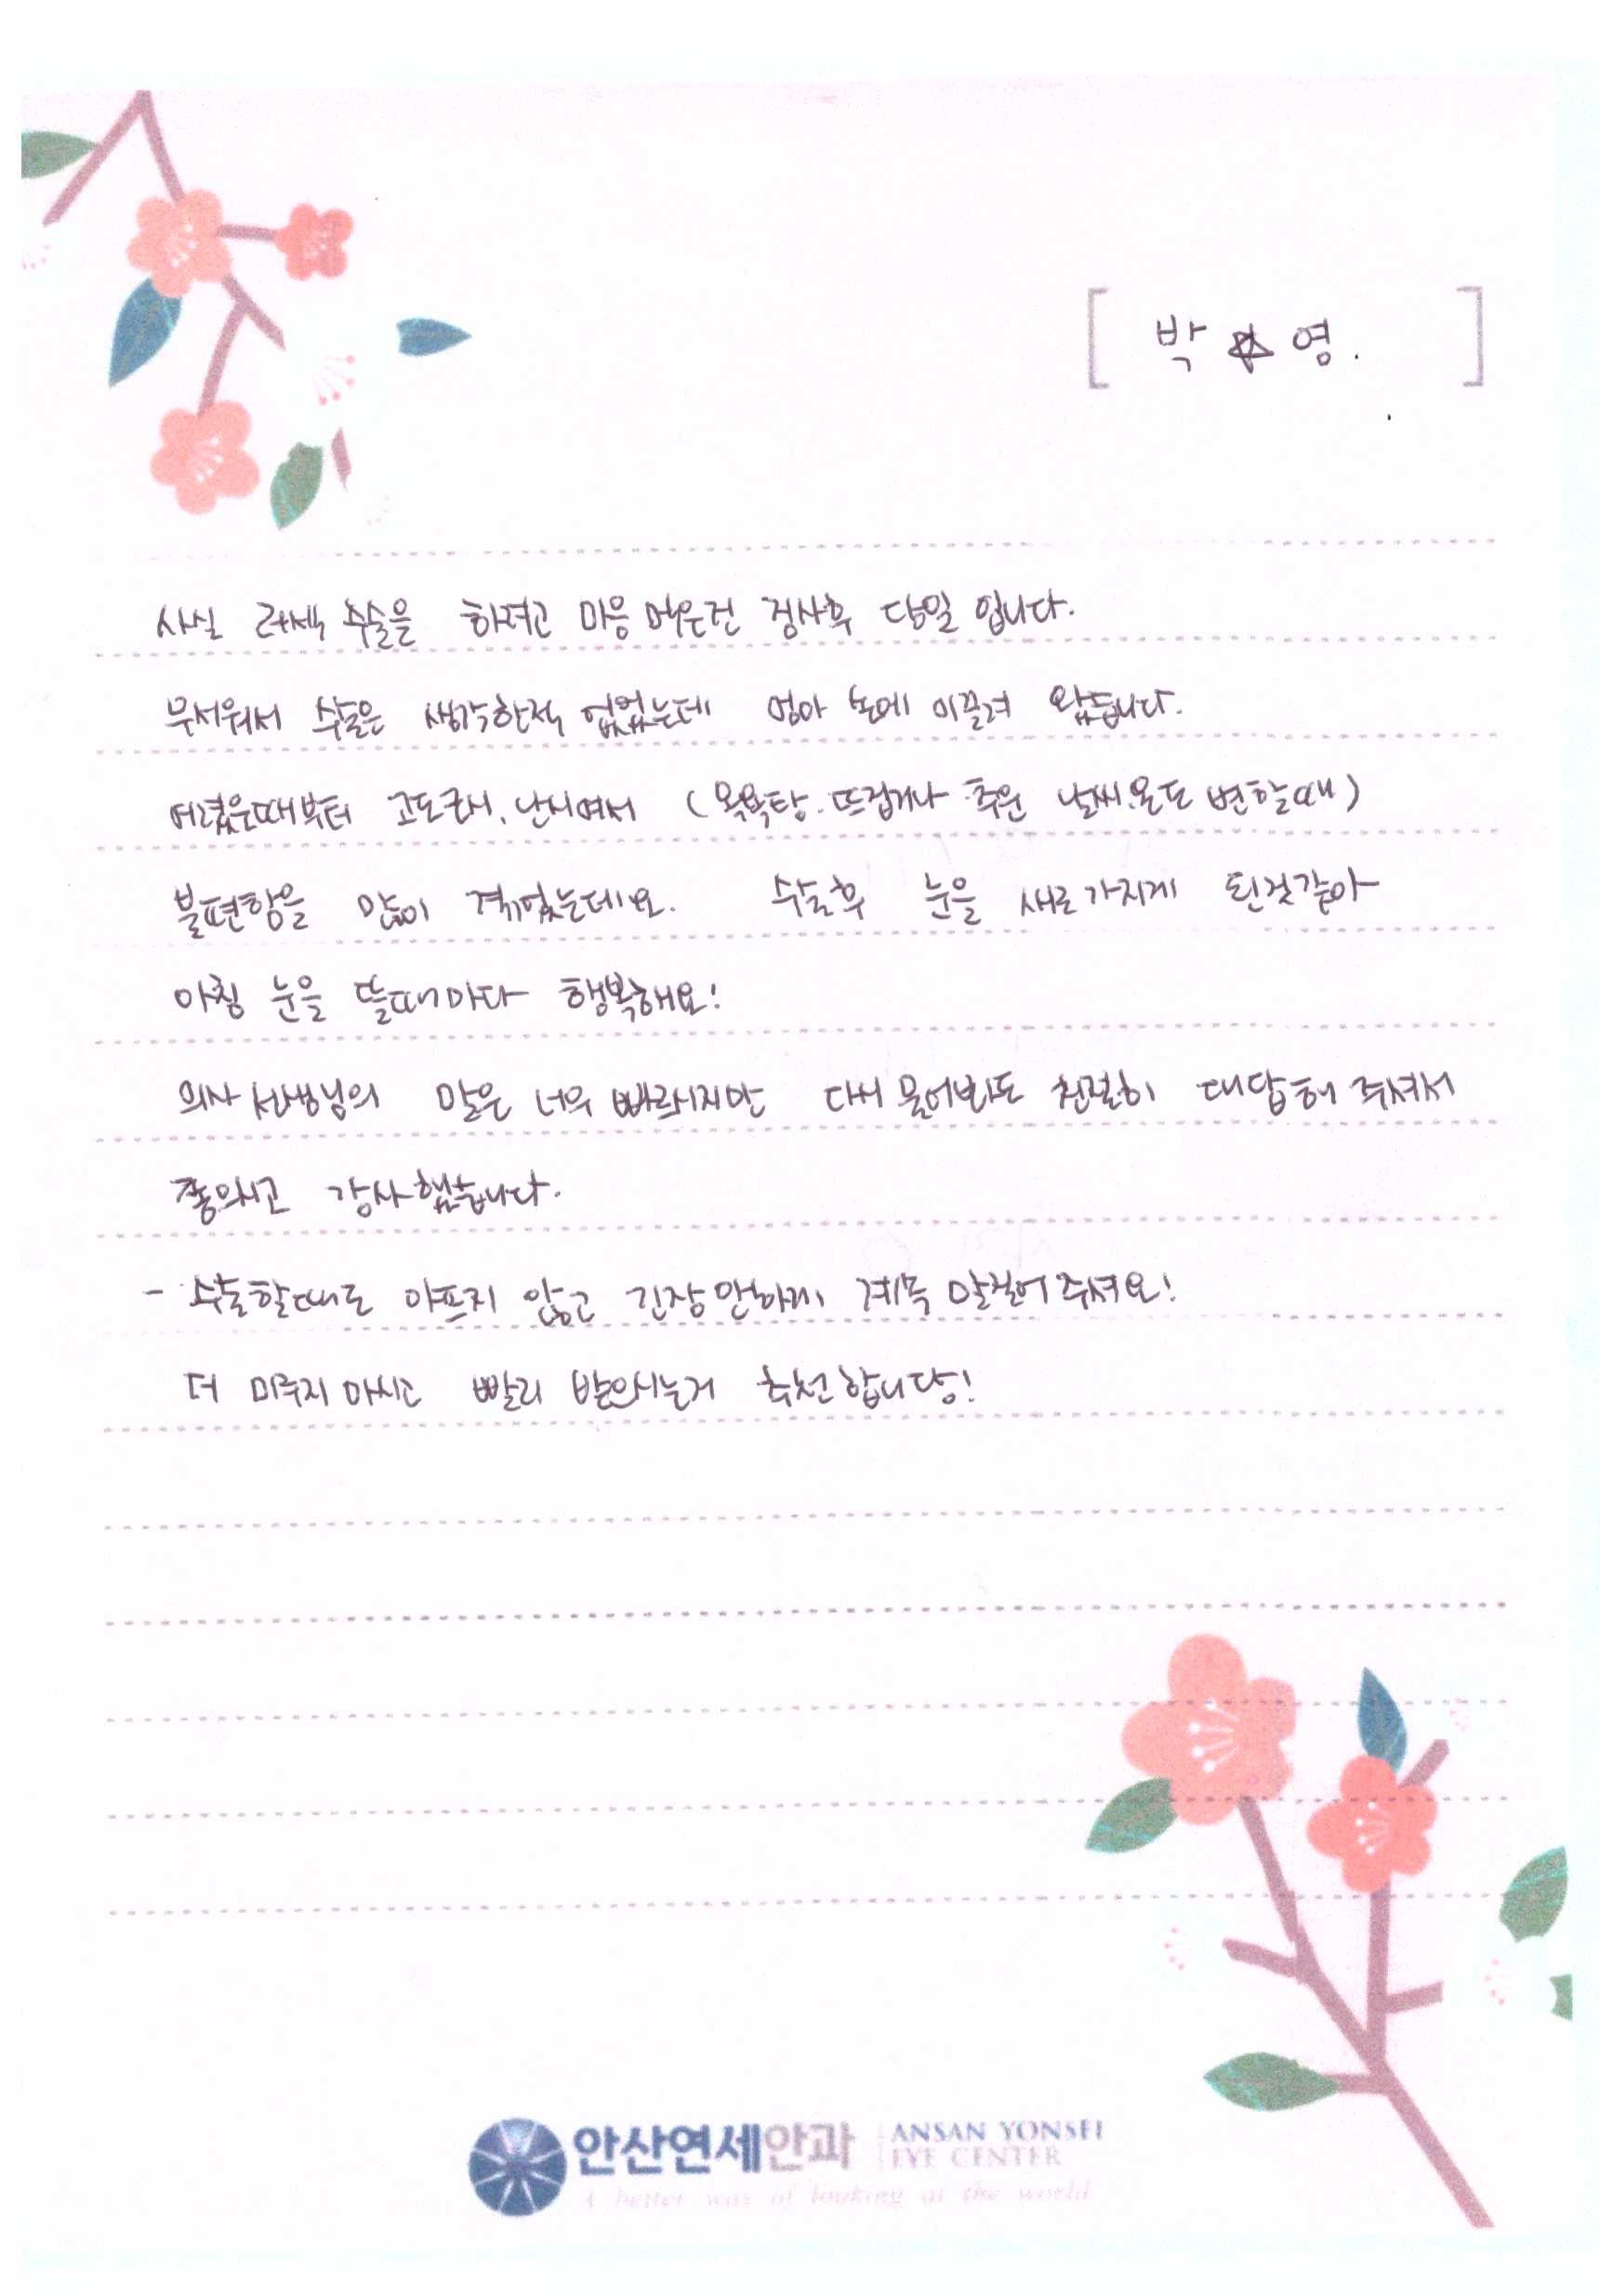 [ 박☆영. ]
사실 라섹 수술을 하려고 마음 먹은건 검사후 당일 입니다.
무서워서 수술은 생각한적 없었는데 엄마 손에 이끌려 왔습니다.
어렸을때부터 고도근시, 난시여서 (목욕탕. 뜨겁거나 추운 날씨.온도 변할때)
불편함을 많이 겪었는데요. 수술후 눈을 새로가지게 된것같아
아침 눈을 뜰때마다 행복해요!
의사 선생님의 말은 너무 빠르시지만 다시 물어봐도 친절히 대답해 주셔서
좋으시고 감사했습니다.
- 수술할때도 아프지 않고 긴장안하게 계속 말걸어주셔요!
더 미루지 마시고 빨리 받으시는거 추천합니당!
안산연세안과 ANSAN YONSEI
EYE CENTER
A better way of looking at the world